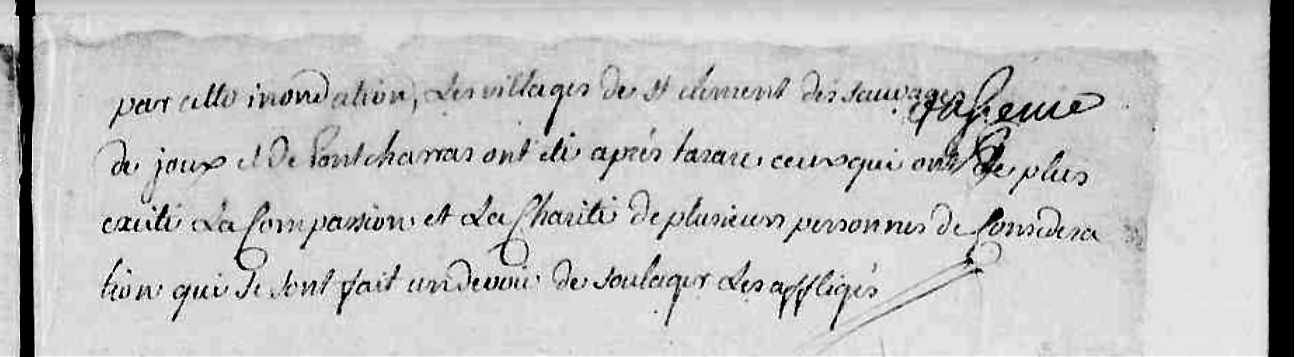 par cette inondation, Les villages de st clement des sauvages
de joux et De Pontcharras ont été après tarare ceux qui ont Le plus
excité La Compassion et La Charité de plusieurs personnes de Considera
tion qui se sont fait un devoir de soulager Les affligés